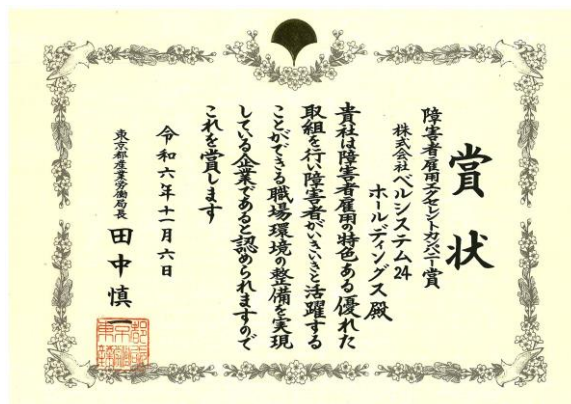 賞状
障害者雇用エクセレントカンパニー賞
株式会社ベルシステム24
ホールディングス殿
貴社は障害者雇用の特色ある優れた
取組を行い障害者がいきいきと活躍する
ことができる職場環境の整備を実現
している企業であると認められますので
これを賞します
令和六年十一月六日
東京都産業労働局長
田中慎一